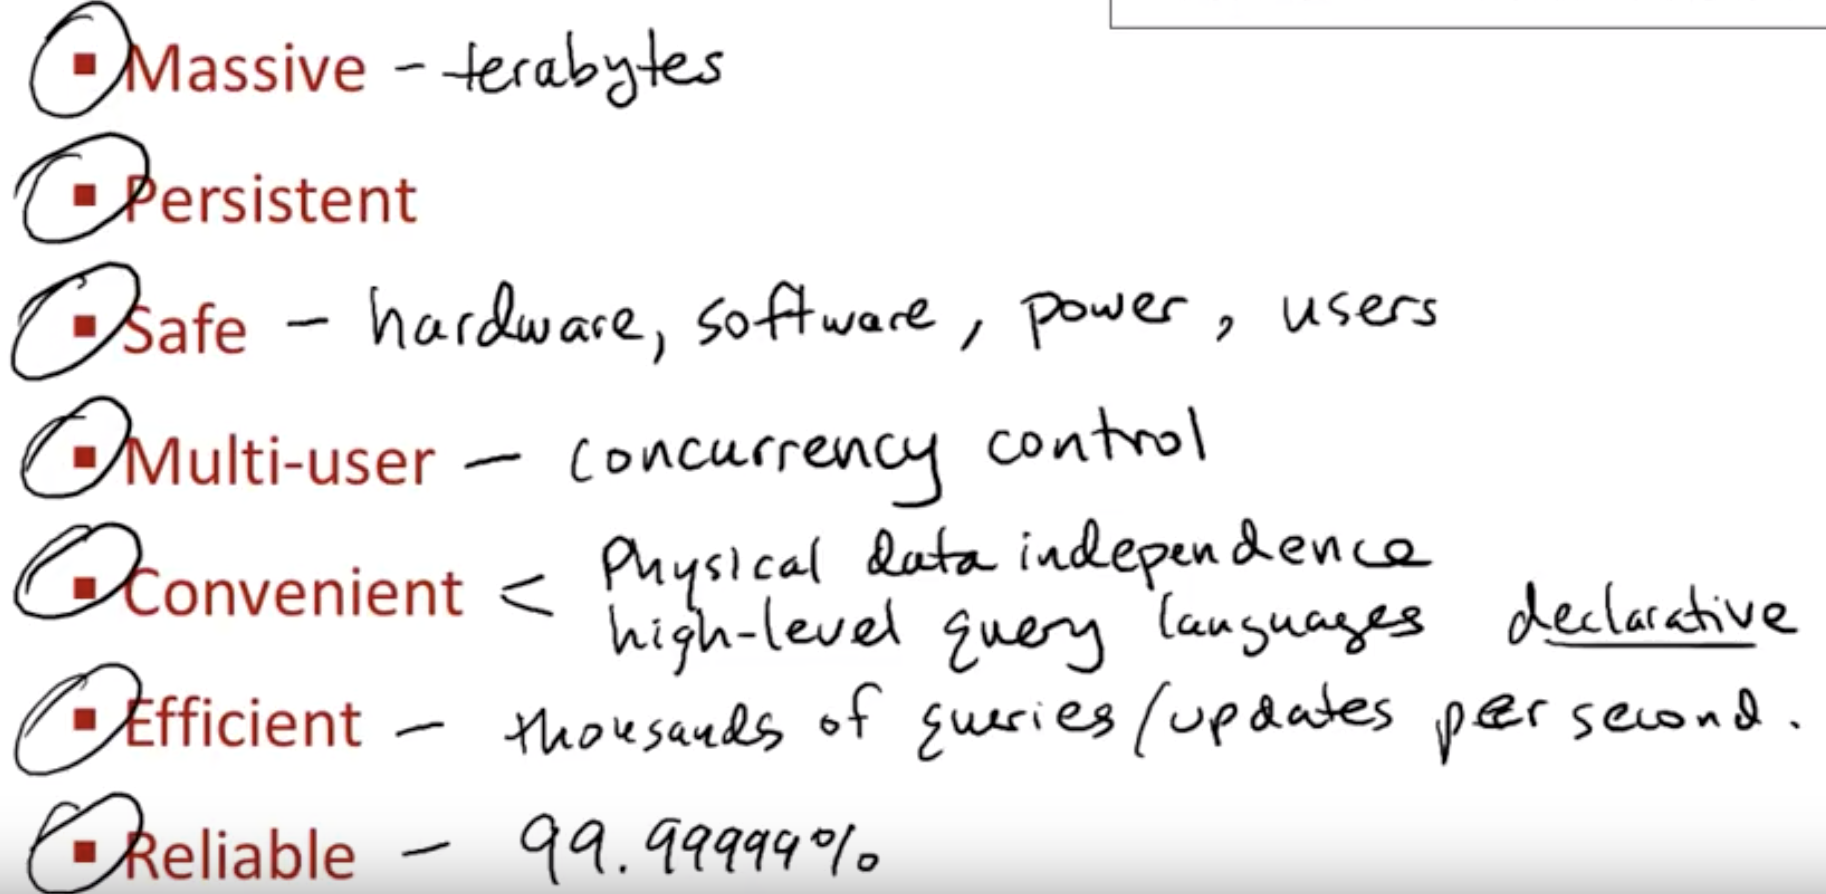 ▪ Massive - terabytes
▪ Persistent
▪ Safe - hardware, software, power, users
▪ Multi-user - concurrency control
▪ Convenient < Physical data independence
high-level query languages declarative
▪ Efficient - thousands of queries/updates per second.
▪ Reliable - 99.99999%